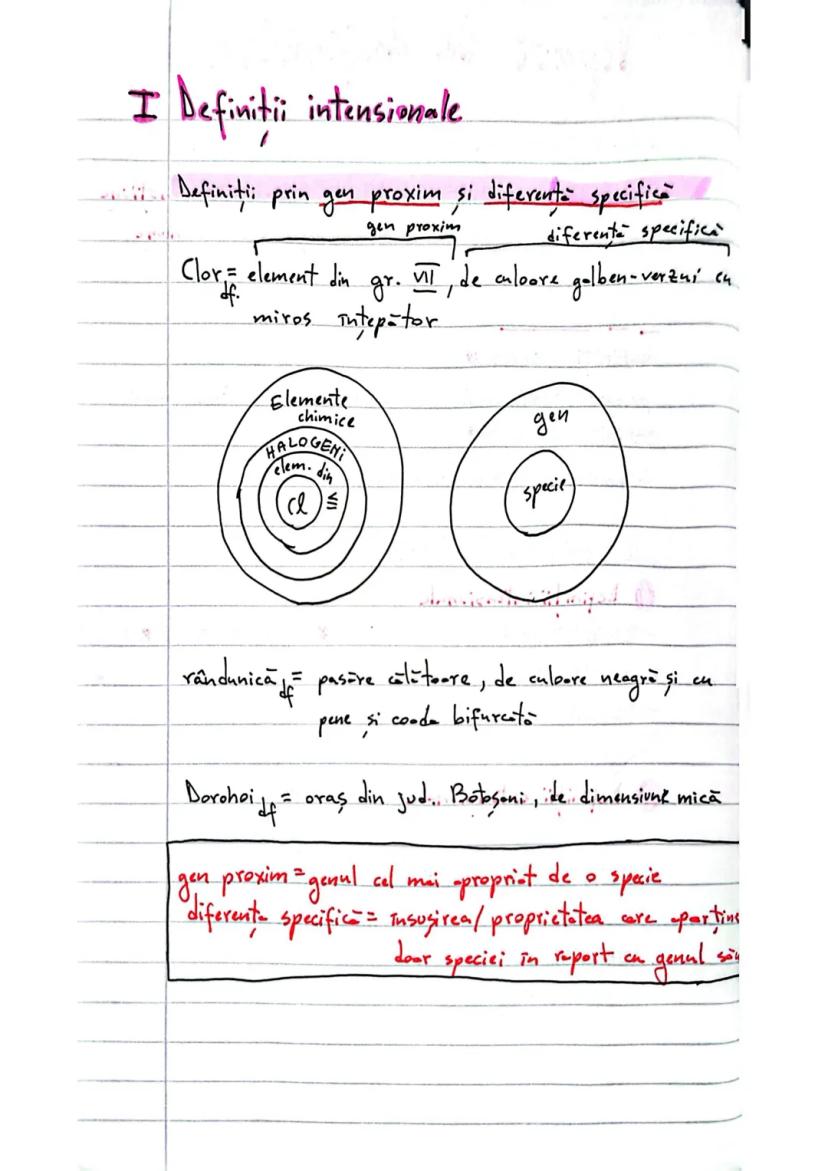 I Definiții intensionale
Definiții prin gen proxim și diferență specifică
gen proxim
diferență specifică
Clor =df. element din gr. VII, de culoare galben-verzui cu
miros înțepător
Elemente
chimice
HALOGENI
elem. din
VII
Cl
gen
specie
rândunică =df pasăre călătoare, de culoare neagră și cu
pene și coada bifurcată
Dorohoi df = oraș din jud. Botoșani, de dimensiune mică
gen proxim = genul cel mai apropiat de o specie
diferența specifică = însușirea/proprietatea care aparține
doar speciei în raport cu genul său